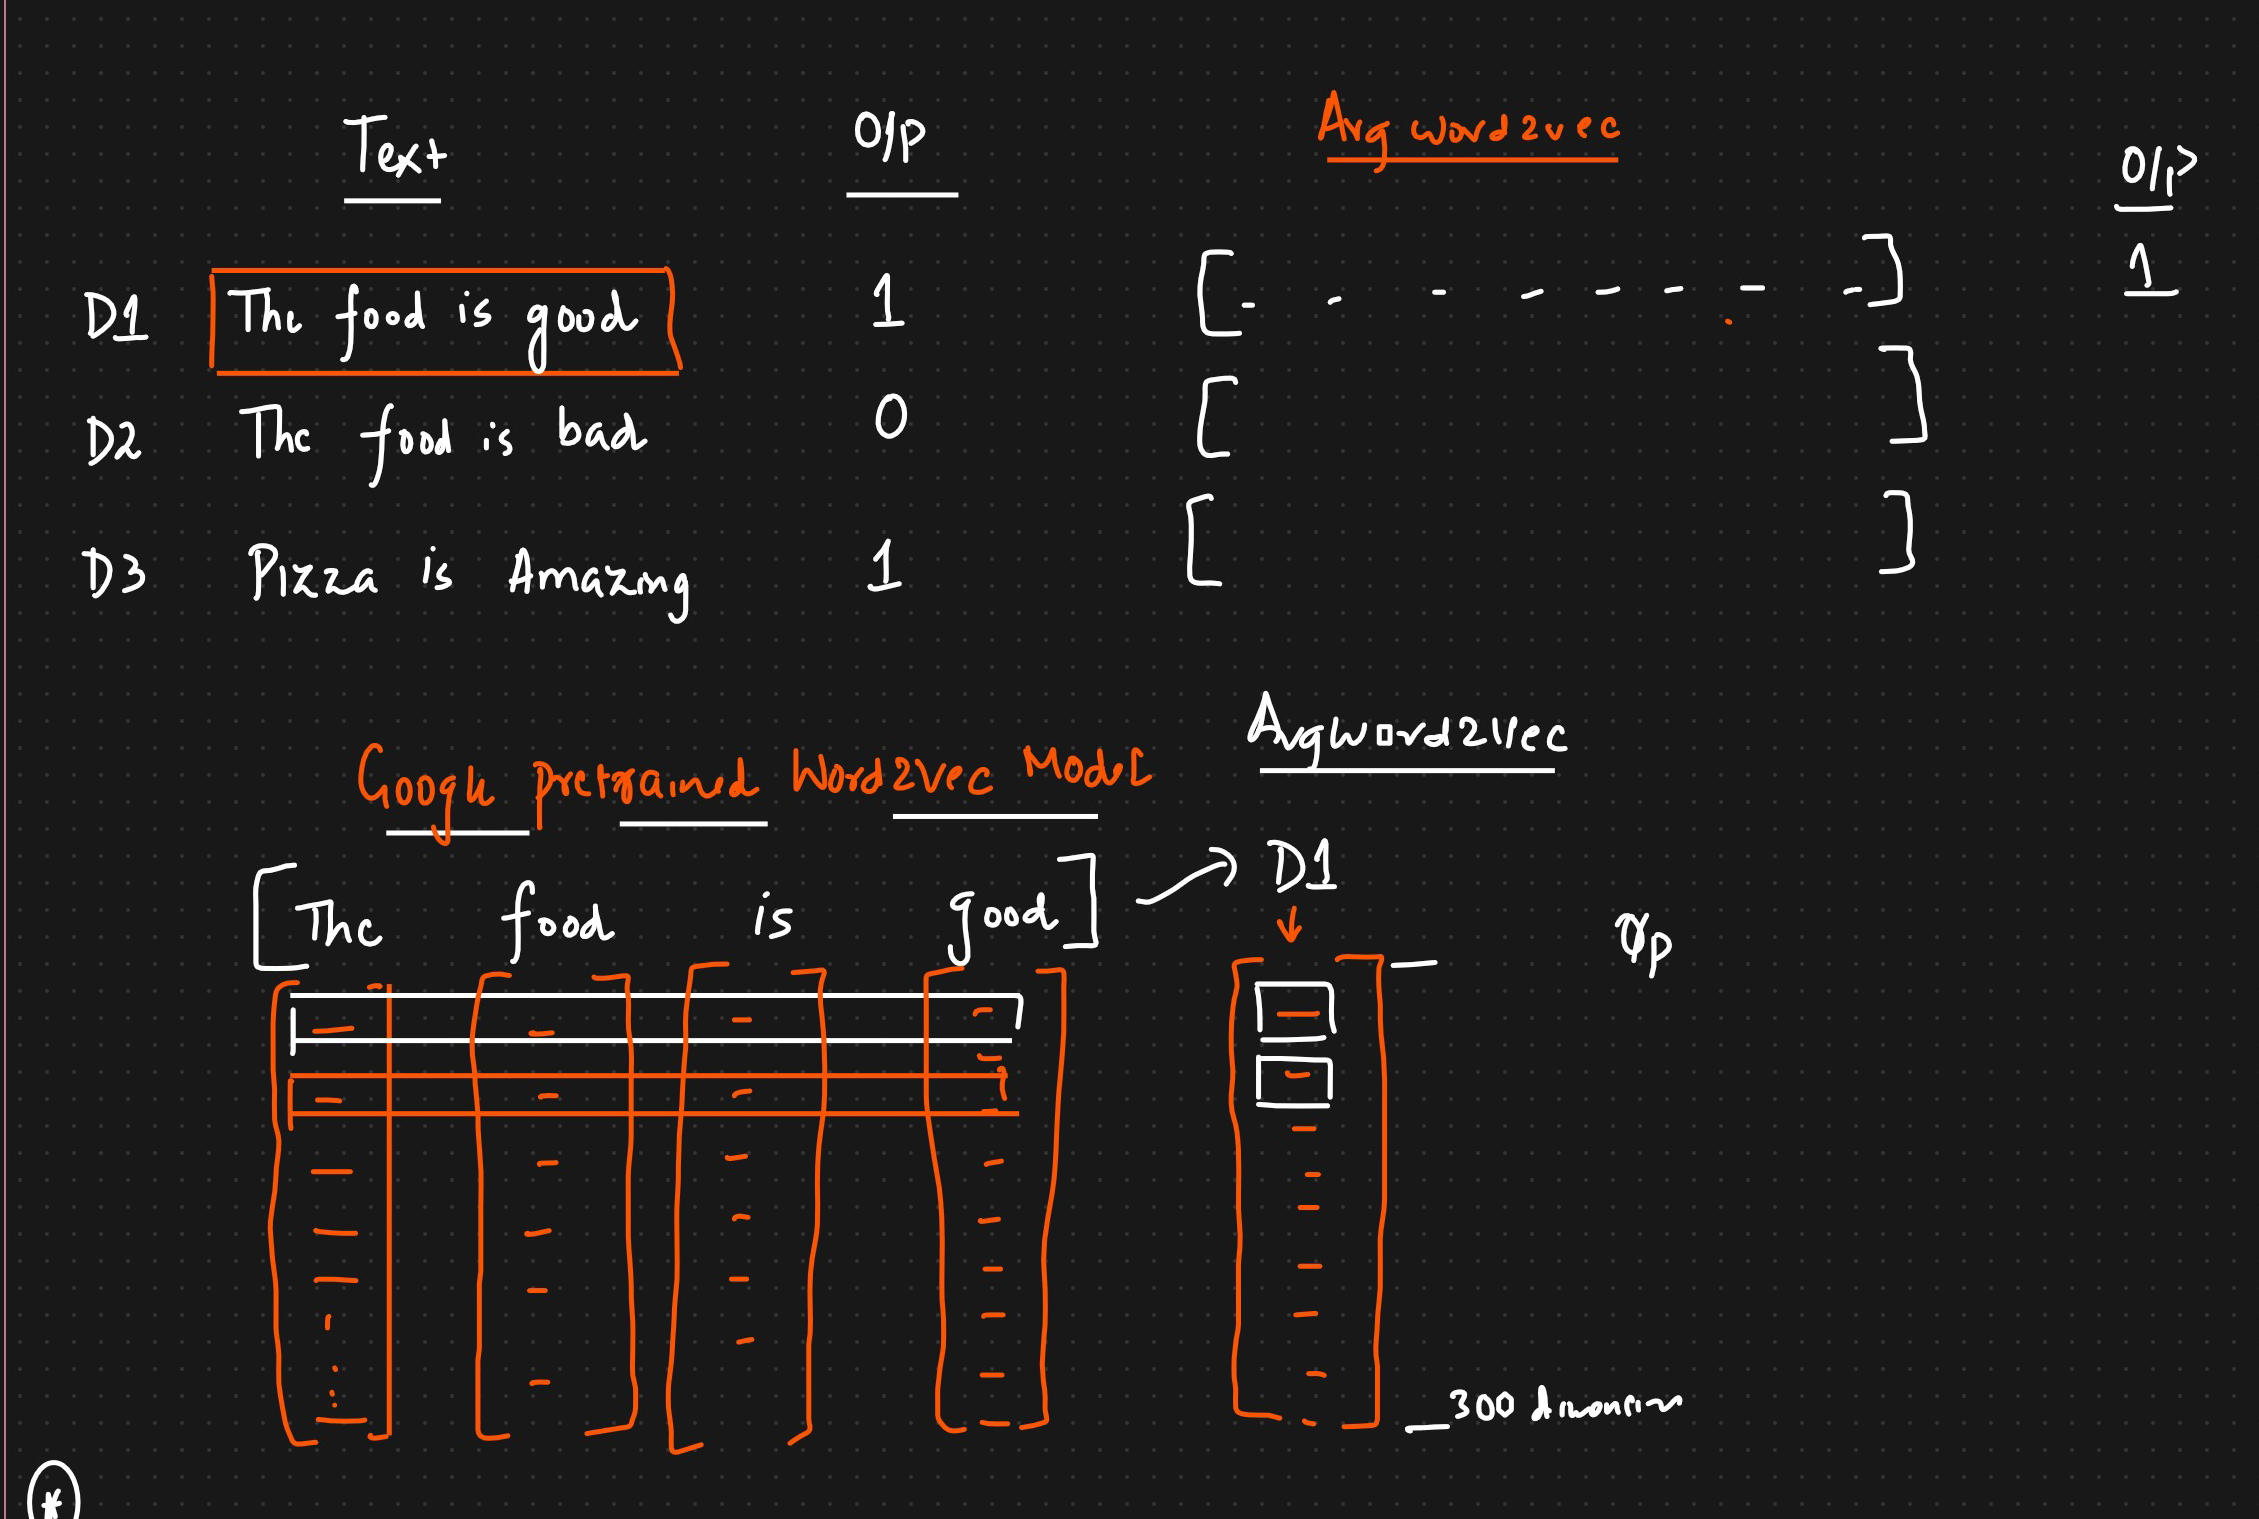 Text O/p Avg word2vec O/p
D1 The food is good 1 [- - - - - - - -] 1
D2 The food is bad 0 [ ]
D3 Pizza is Amazing 1 [ ]
AvgWord2Vec
Google pretrained Word2Vec Model
[The food is good] → D1
O/p
300 dimension
*